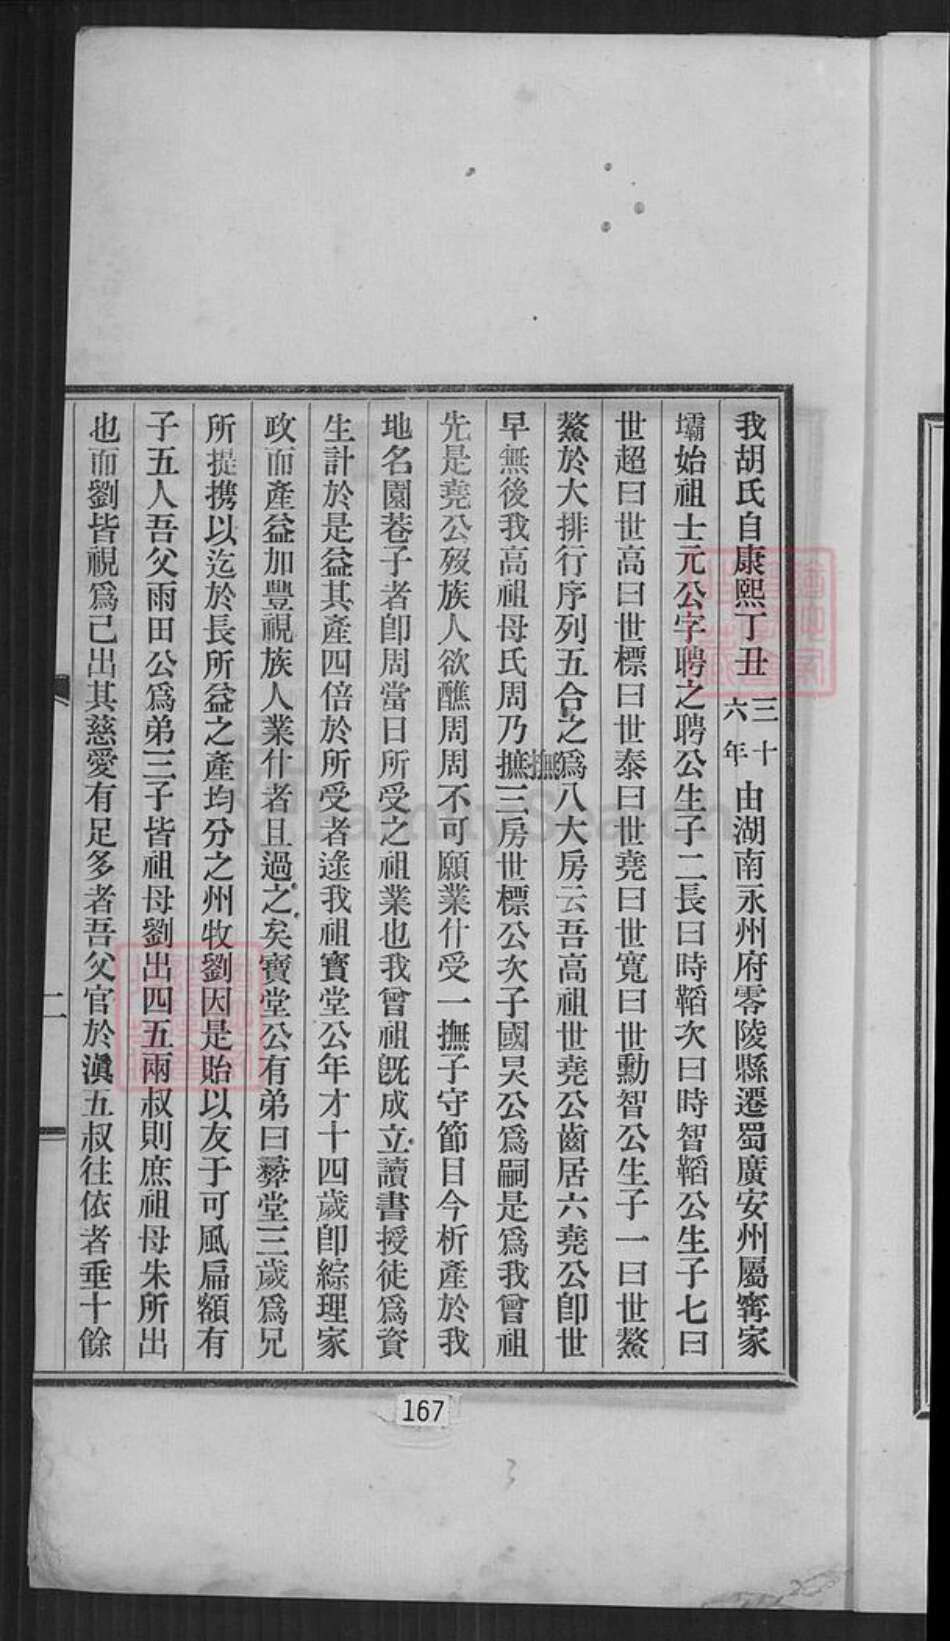 我胡氏自康熙丁丑三十六年由湖南永州府零陵縣遷蜀廣安州屬甯家
壩始祖士元公字聘之聘公生子二長曰時韜次曰時智韜公生子七曰
世超曰世高曰世標曰世泰曰世堯曰世寬曰世勳智公生子一曰世鰲
鰲於大排行序列五合之爲八大房云吾高祖世堯公齒居六堯公卽世
早無後我高祖母氏周乃撫撫三房世標公次子國昊公爲嗣是爲我曾祖
先是堯公歿族人欲醮周周不可願業什受一撫子守節日今析產於我
地名園巷子者卽周當日所受之祖業也我曾祖旣成立讀書授徒爲資
生計於是益其產四倍於所受者逯我祖寶堂公年才十四歲卽綜理家
政而產益加豐視族人業什者且過之矣寶堂公有弟曰彝堂三歲爲兄
所提携以迄於長所益之產均分之州牧劉因是貽以友于可風扁額有
子五人吾父雨田公爲弟三子皆祖母劉出四五兩叔則庶祖母朱所出
也而劉皆視爲己出其慈愛有足多者吾父官於滇五叔往依者垂十餘
二
167